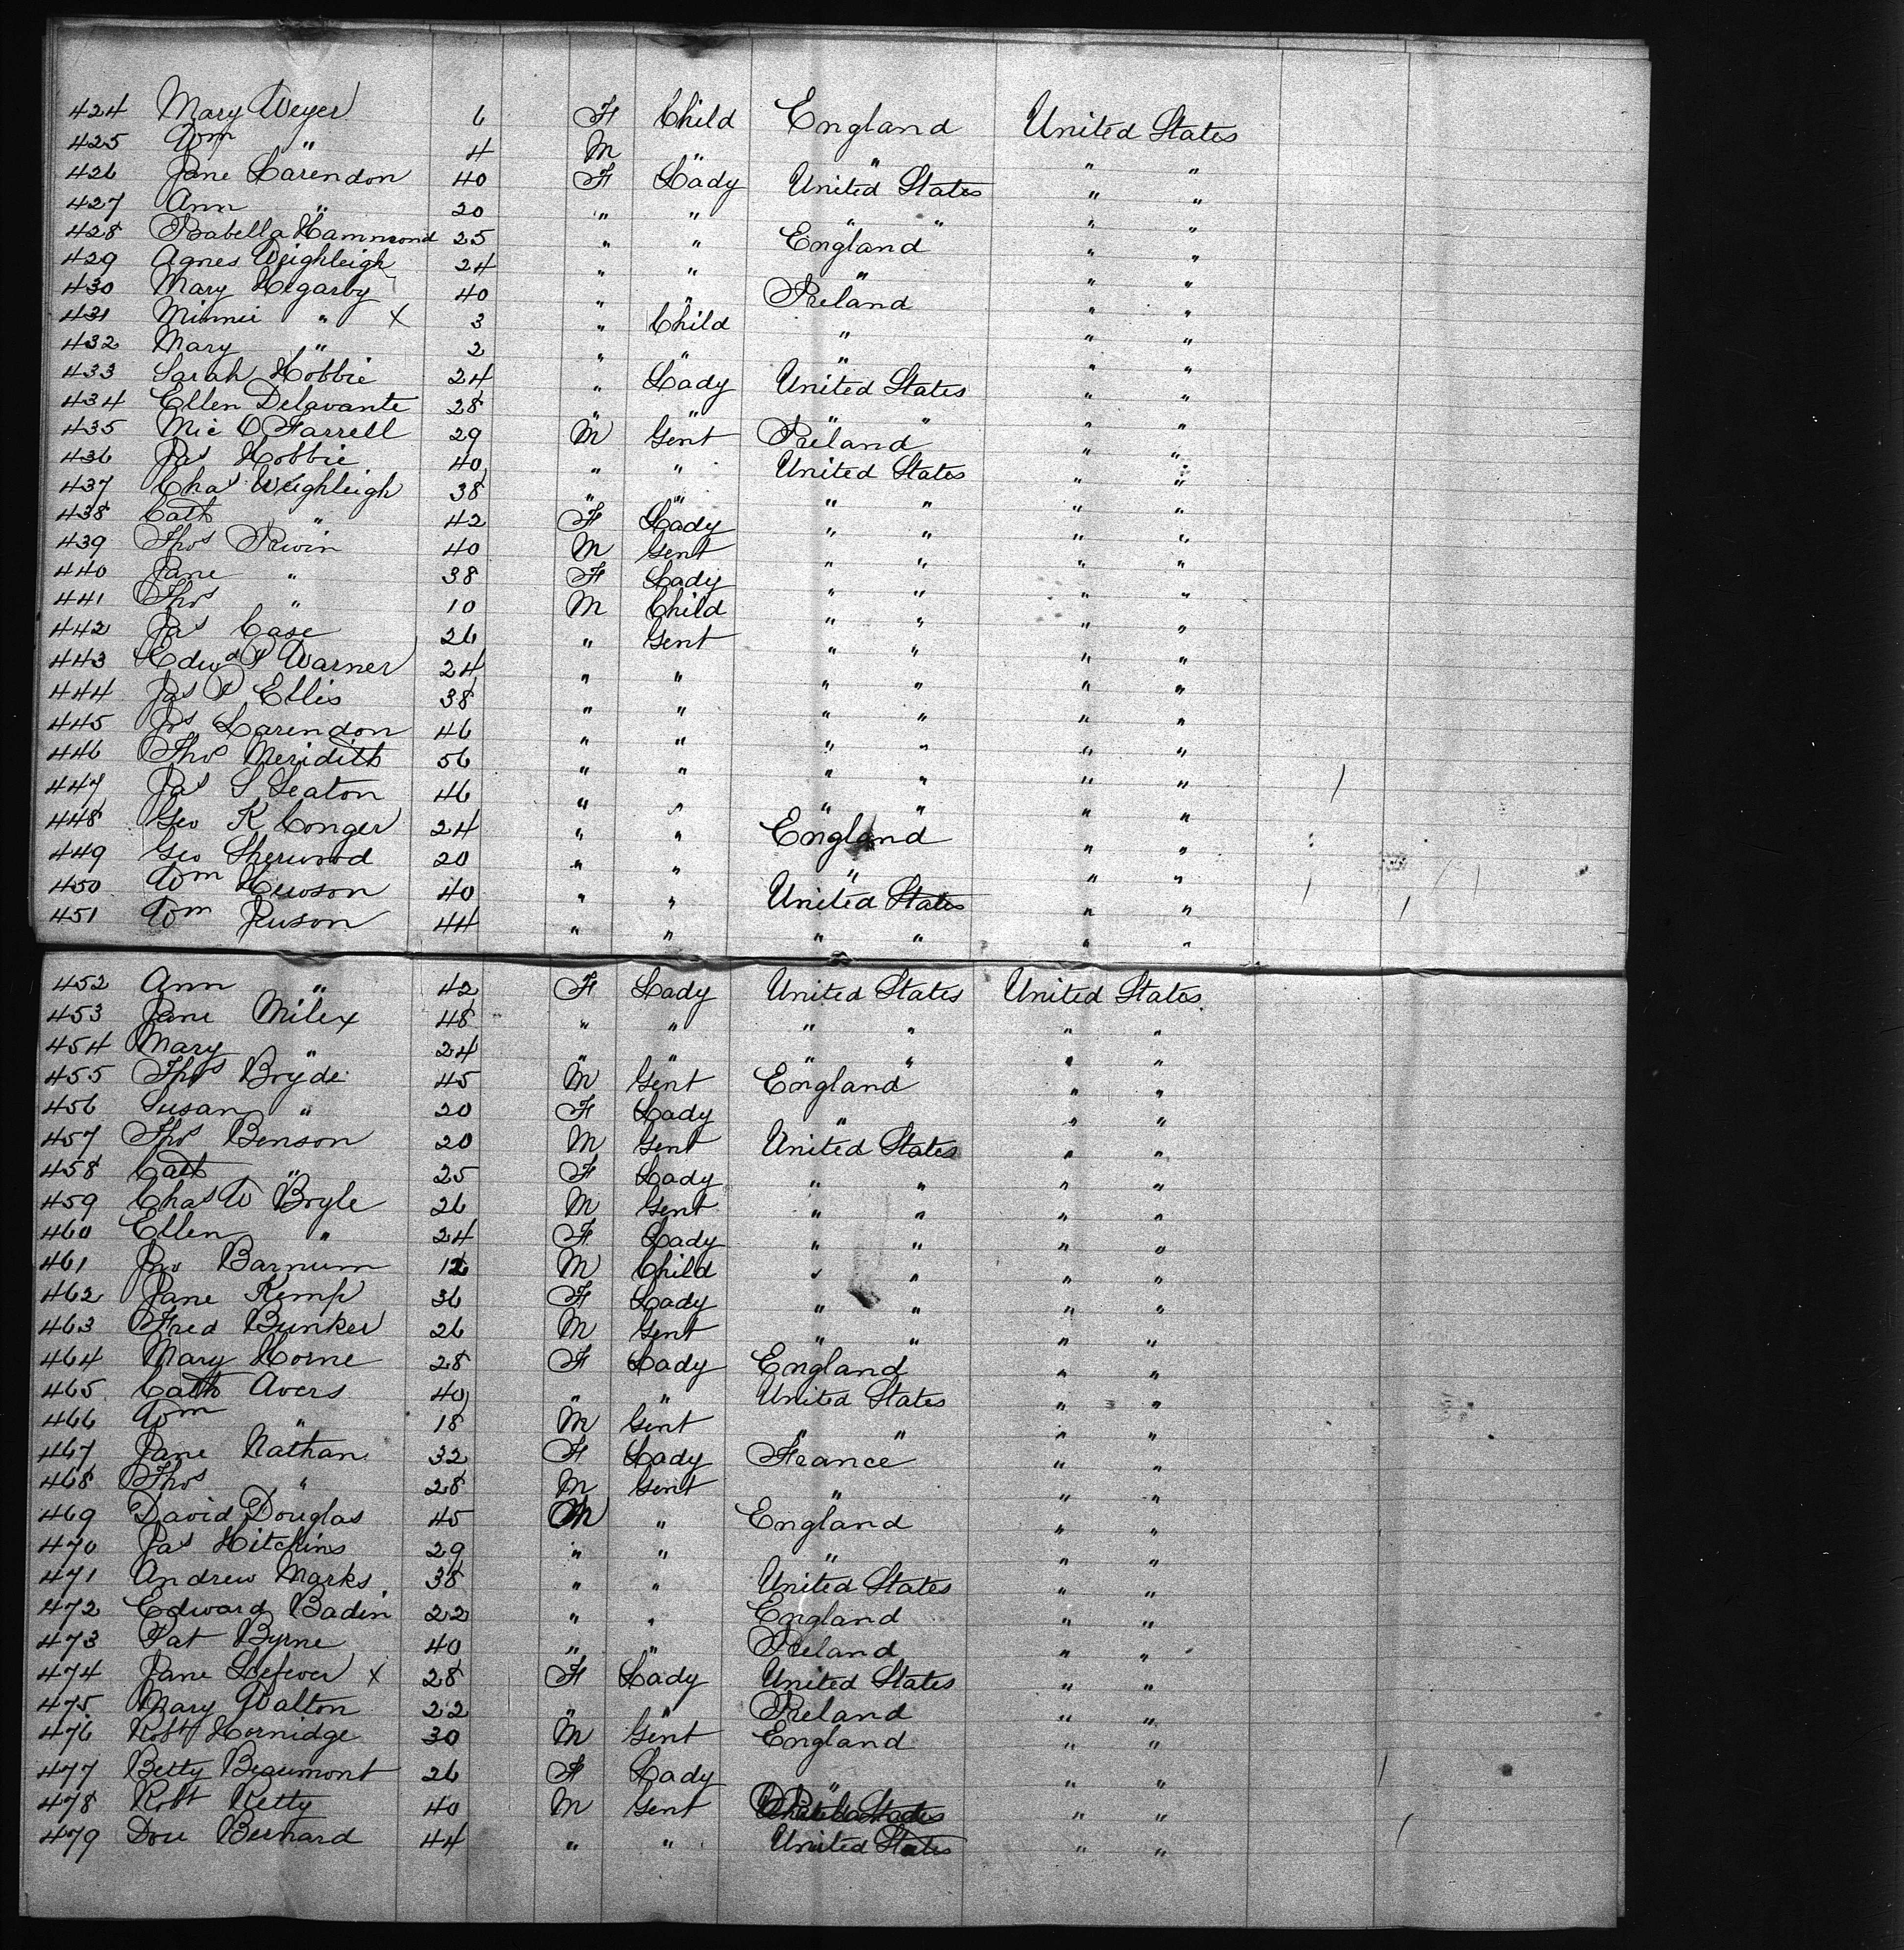 424 Mary Weyer 6 F Child England United States
425 Wm " 4 M " " " "
426 Jane Larendon 40 F Lady United States " "
427 Ann " 20 " " " " " "
428 Isabella Hammond 25 " " England " "
429 Agnes Weighleigh 24 " " " " "
430 Mary Hegarby 40 " " Ireland " "
431 Minnie " X 3 " Child " " "
432 Mary " 2 " " " " "
433 Sarah Hobbie 24 " Lady United States " "
434 Ellen Delavante 28 " " " " " "
435 Mic O Farrell 29 M Gent Ireland " "
436 Jas Hobbie 40 " " United States " "
437 Chas Weighleigh 38 " " " " " "
438 Cath " 42 F Lady " " " "
439 Thos Irwin 40 M Gent " " " "
440 Jane " 38 F Lady " " " "
441 Thos " 10 M Child " " " "
442 Jas Case 26 " Gent " " " "
443 Edwd P Warner 24 " " " " " "
444 Jas P Ellis 38 " " " " " "
445 Jos Larendon 46 " " " " " "
446 Thos Meridith 56 " " " " " "
447 Jas S Seaton 46 " " " " " "
448 Geo K Conger 24 " " England " "
449 Geo Sherwood 20 " " " " "
450 Wm Hewson 40 " " United States " "
451 Wm Juson 44 " " " " " "
452 Ann " 42 F Lady United States United States
453 Jane Milex 48 " " " " " "
454 Mary " 24 " " " " " "
455 Thos Bryde 45 M Gent England " "
456 Susan " 20 F Lady " " "
457 Thos Benson 20 M Gent United States " "
458 Cath " 25 F Lady " " " "
459 Chas W Bryle 26 M Gent " " " "
460 Ellen " 24 F Lady " " " "
461 Jno Barnum 12 M Child " " " "
462 Jane Kemp 36 F Lady " " " "
463 Fred Bunker 26 M Gent " " " "
464 Mary Horne 28 F Lady England " "
465 Cath Avers 40 " " United States " "
466 Wm " 18 M Gent " " " "
467 Jane Nathan 32 F Lady France " "
468 Thos " 28 M Gent " " "
469 David Douglas 45 M " England " "
470 Jas Hitchins 29 " " " " "
471 Andrew Marks 38 " " United States " "
472 Edward Badin 22 " " England " "
473 Pat Byrne 40 " " Ireland " "
474 Jane Leefever X 28 F Lady United States " "
475 Mary Walton 22 " " Ireland " "
476 Robt Hornidge 30 M Gent England " "
477 Betty Beaumont 26 F Lady " " "
478 Robt Ketty 40 M Gent " "
479 Dou Bernard 44 " " United States " "